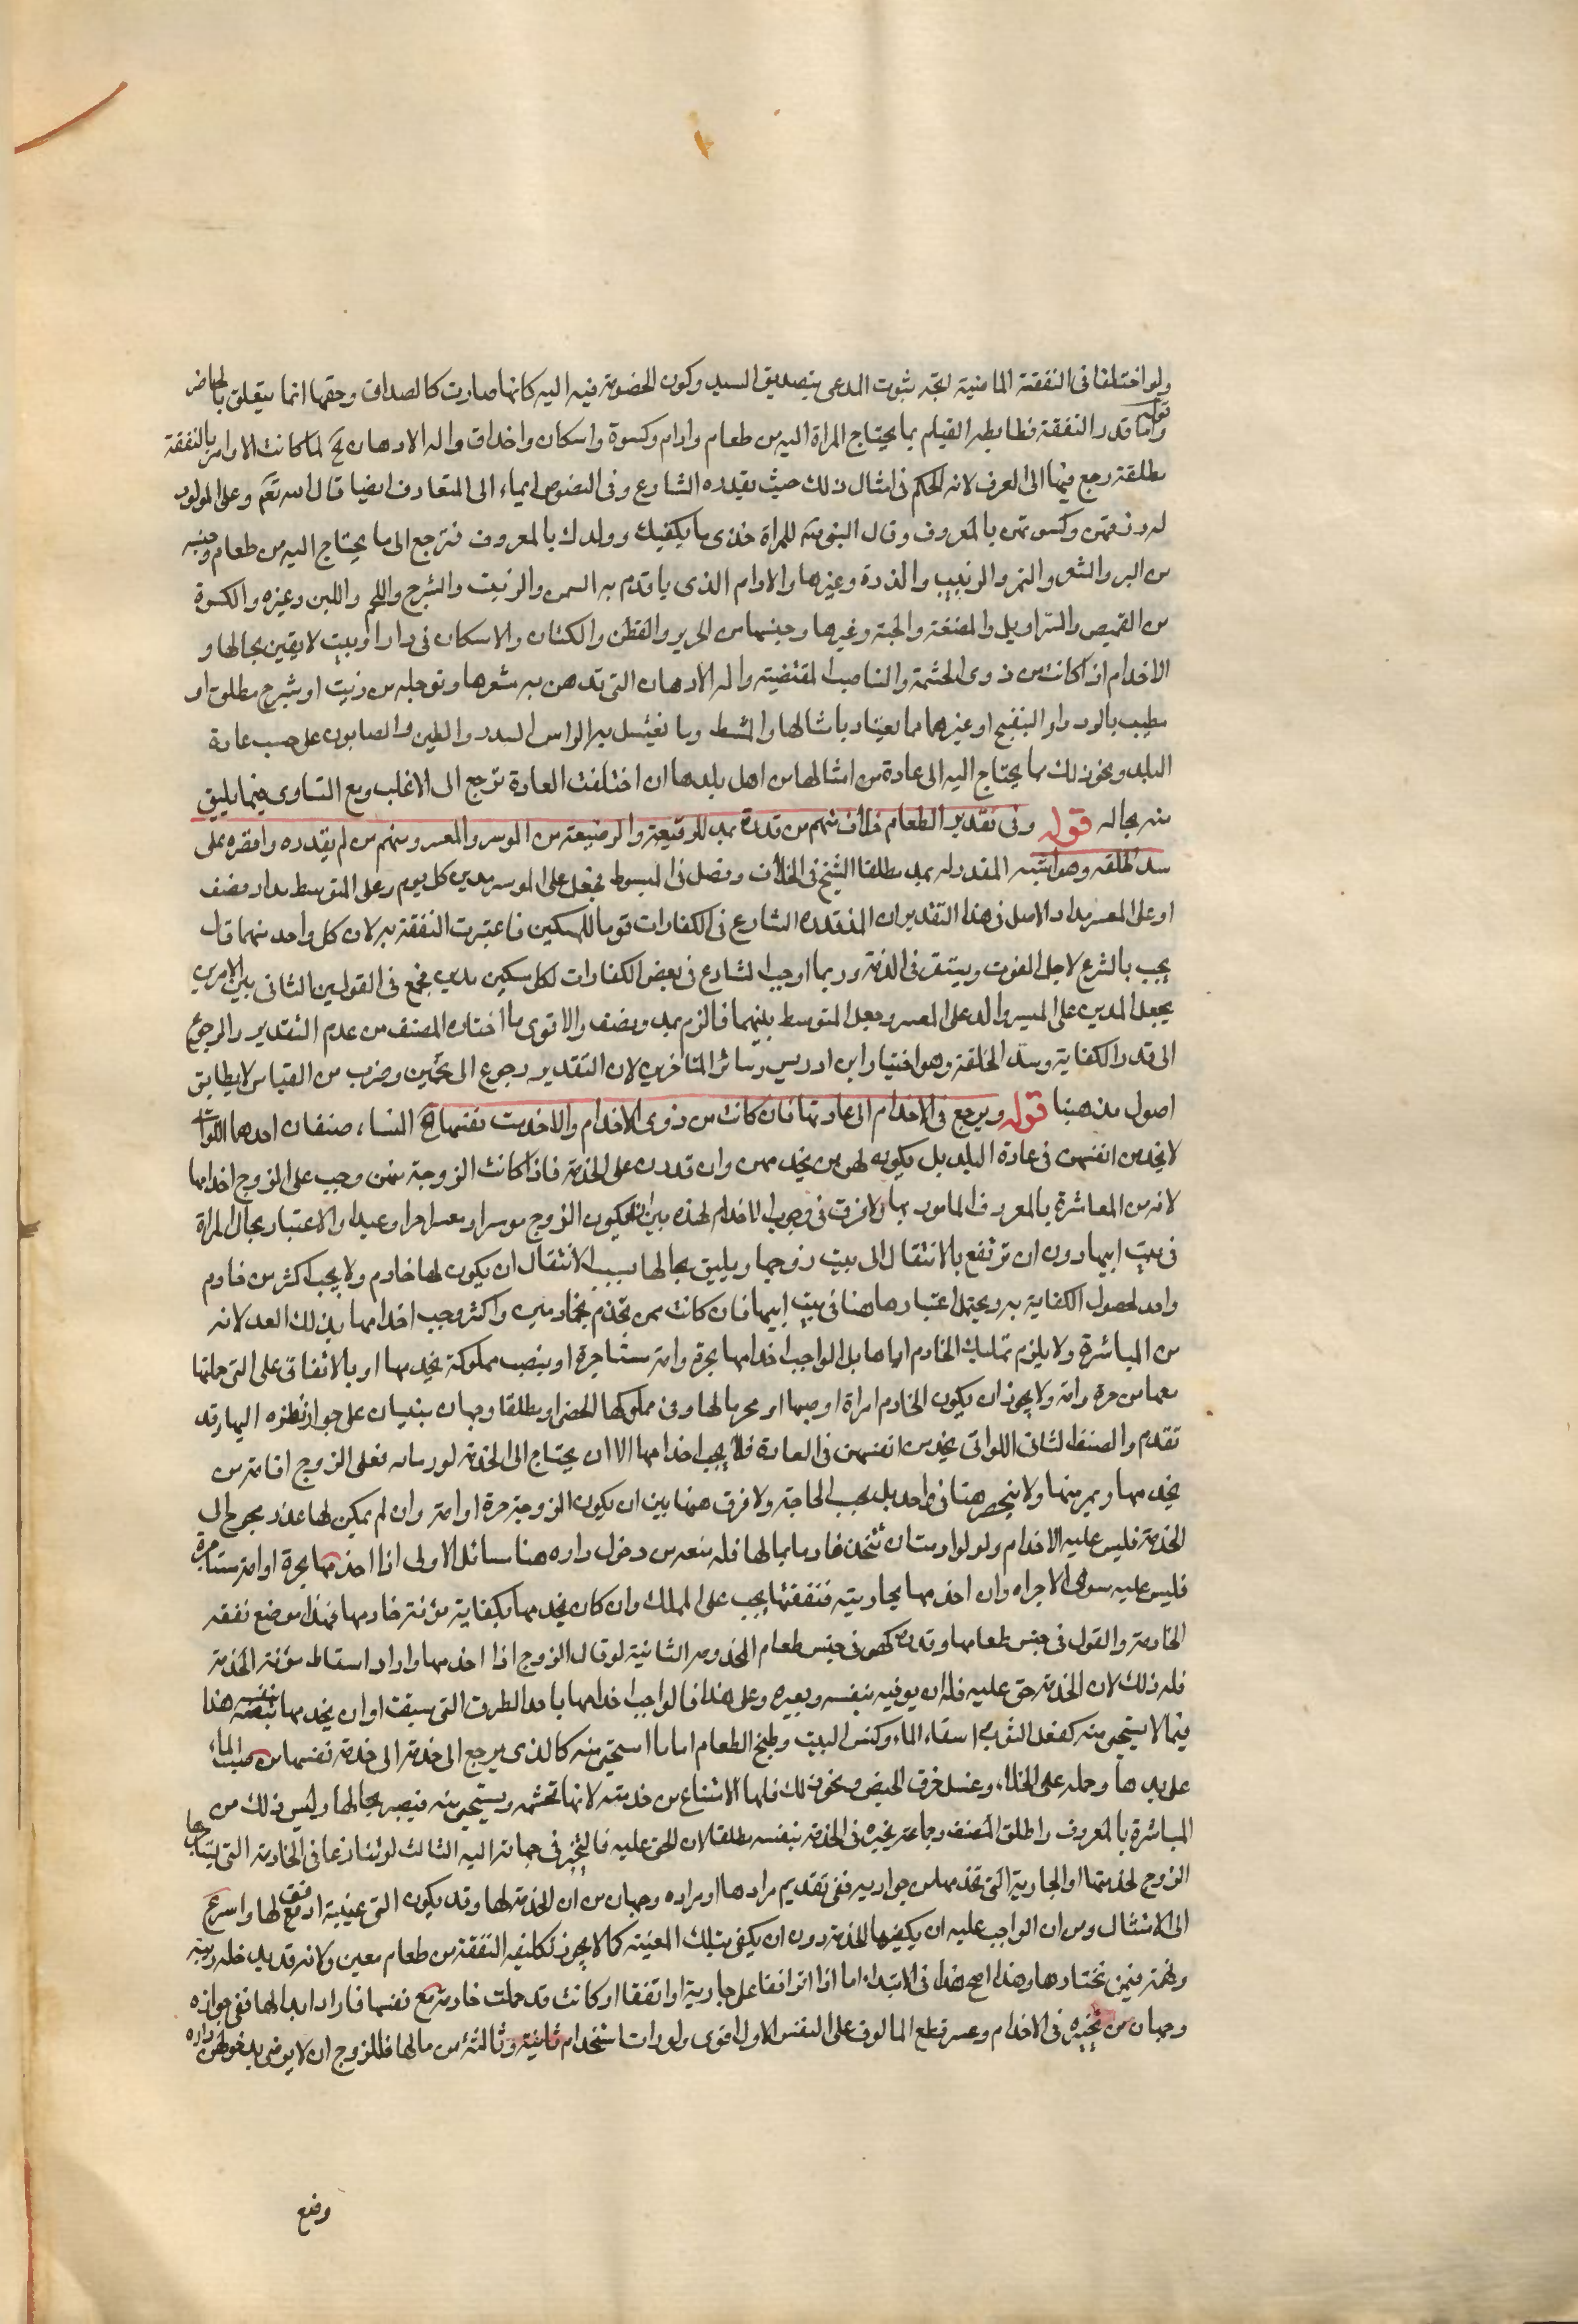 ولو اختلفا فى النفقة الماضية اتجه ثبوت المدعى بتصديق السيد وكون الخصومة فيه اليه كانها صارت كالصداق وحقها انما يتعلق بالحاضر
قوله واما قدر النفقة فضابطه القيام بما يحتاج المراة اليه من طعام وادام وكسوة واسكان واخدام واله الادهان الخ لما كانت الاوامر بالنفقة
مطلقة رجع فيها الى العرف لانه الحكم فى امثال ذلك حيث يقدره الشارع وفى النصوص ايماء الى المتعارف ايضا قال الله تعم وعلى المولود
له رزقهن وكسوتهن بالمعروف وقال النبى للمراة خذى ما يكفيك وولدك بالمعروف فترجع الى ما يحتاج اليه من طعام وجنسه
من البر والشعير والتمر والزبيب والذرة وغيرها والادام الذى ياتدم به السمن والزيت والشيرج واللحم واللبن وغيره والكسوة
من القميص والسراويل والمقنعة والجبة وغيرها وجنسها من الحرير والقطن والكتان والاسكان فى دار او بيت لايقين بحالها و
الاخدام اذا كانت من ذوى الحشمة والمناصب المقتضية واله الادهان التى تدهن به شعرها وترجله من زيت او شيرج مطلق او
مطيب بالورد او البنفسج او غيرهما مما يعتاد بامثالها والمشط وما تغتسل به الراس السدر والطين والصابون على حسب عادة
البلد ونحو ذلك مما يحتاج اليه الى عادة من امثالها من اهل بلدها ان اختلفت العادة ترجع الى الاغلب ومع التساوى فيما يليق
منه بحاله قوله وفى تقدير الطعام خلاف فمنهم من قدره بمد للرفيعة والوضيعة من الموسر والمعسر ومنهم من لم يقدره واقتصر على
سد الخلة وهو اشبه المقدر له بمد مطلقا الشيخ فى الخلاف وفصل فى المبسوط فجعل على الموسر مدين كل يوم وعلى المتوسط مدا ونصف
او على المعسر مدا والاصل فى هذا التقدير ان المد قدره الشارع فى الكفارات قوتا للمسكين فاعتبرت النفقة به لان كل واحد منهما قال
يجب بالشرع لاجل القوت ويستقر فى الذمة وربما اوجب الشارع فى بعض الكفارات لكل مسكين مدين فجمع فى القولين الثانى بين الامرين
بجعل المدين على الميسر والمد على المعسر وجعل المتوسط بينهما فالزم بمد ونصف والاقوى ما اختاره المصنف من عدم التقدير والرجوع
الى قدر الكفاية وسد الخلقة وهو اختيار ابن ادريس وسائر المتاخرين لان التقدير رجوع الى تخمين وضرب من القياس لا يطابق
اصول مذهبنا قوله ويرجع فى الاخدام الى عادتها فان كانت من ذوى الاخدام والا خدمت نفسها الخ النساء صنفان احدهما اللواتى
لا يخدمن انفسهن فى عادة البلد بل يكون لهن من يخدمهن وان قدرن على الخدمة فاذا كانت الزوجة منهن وجب على الزوج اخدامها
لانه من المعاشرة بالمعروف المامور بها ولا فرق فى وجوب الاخدام لهذه بين ان يكون الزوج موسرا ومعسرا حرا وعبدا والاعتبار بحال المراة
فى بيت ابيها دون ان ترتفع بالانتقال الى بيت زوجها ويليق بحالها بسبب الانتقال ان يكون لها خادم ولا يجب اكثر من خادم
واحد لحصول الكفاية به ويحتمل اعتبارها هنا فى بيت ابيها فان كانت ممن تخدم بخادمين واكثر وجب اخدامها بذلك العدد لانه
من المباشرة ولا يلزم تمليك الخادم اياها بل الواجب اخدامها بحرة وامة مستاجرة او ينصب مملوكة يخدمها او بالاتفاق على التى حملتها
معها من حرة وامة ولا يجوز ان يكون الخادم امراة او صبيا او محرما لها وفى مملوكها الخصى او مطلقا وجهان مبنيان على جواز نظره اليها وقد
تقدم والصنف الثانى اللواتى يخدمن انفسهن فى العادة فلا يجب اخدامها الا ان يحتاج الى الخدمة لمرض فعلى الزوج اقامة من
يخدمها ويمرضها ولا ينحصر هنا فى واحد بل بحسب الحاجة ولا فرق هنا بين ان يكون الزوجة حرة او امة وان لم يكن لها عذر يحوج الى
الخدمة فليس عليه الاخدام ولو ارادت ان تتخذ خادما بمالها فله منعه من دخول داره هنا مسائل الاولى اذا اخدمها بحرة او امة مستاجرة
فليس عليه سوى الاجراه وان اخدمها بجاريته فنفقتها يجب على الملك وان كان يخدمها بكفاية مؤنة خادمها فهذا موضع نفقه
الخادمة والقول فى جنس طعامها وقدره كهو فى جنس طعام المخدومه الثانية لو قال الزوج اذا اخدمها واراد اسقاط مؤنة الخدمة
فله ذلك لان الخدمة حق عليه فله ان يوفيه بنفسه وبغيره وعلى هذا فالواجب اخدامها باحد الطرق التى سبقت او ان يخدمها بنفسه هذا
فيما لا يستحيى منه كغسل الثوب واسقاء الماء وكنس البيت وطبخ الطعام اما ما استحيى منه كالذى يرجع الى خدمة الى خدمة نفسها من صب الماء
على يدها وحمله على الخلاء وغسل خرق الحيض ونحو ذلك فلها الامتناع من خدمته لانها تحتشمه ويستحيى منه فيضر بحالها وليس ذلك من
المباشرة بالمعروف واطلق المصنف وجماعة تخيره فى الخدمة بنفسه مطلقا لان الحق عليه فالتخير فى جهاته اليه الثالث لو تنازعا فى الخادمة التى يستاجرها
الزوج لخدمتها او الجارية التى تخدمها من جواريه ففى تقديم مرادها او مراده وجهان من ان الخدمة لها وقد يكون التى عينته اوفق لها واسرع
الى الامتثال ومن ان الواجب عليه ان يكفيها الخدمة دون ان يكفى بتلك المعينة كما لا يجوز تكليفه النفقة من طعام معين ولانه قد يدخله ريبة
وتهمة فيمن تختارها وهذا اصح هذا فى الابتداء اما اذا توافقا على جارية او اتفقا او كانت قد حملت خادمة مع نفسها فاراد ابدالها ففى جوازه
وجهان من تخيره فى الاخدام وعسر قطع المالوف على النفس الاول اقوى ولو ارادت استخدام ثانية وثالثة من مالها فللزوج ان لا يرضى بدخولهن داره
وضع